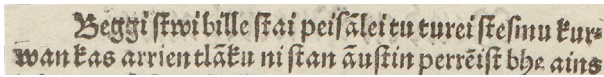 Beggi ſtwi bille ſtai peiſālei tu turei ſteſmu kur⸗
wan kas arrientlāku ni ſtan āuſtin perrēiſt bhe ains